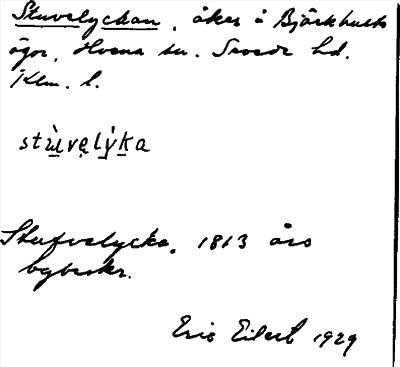 Stuvelyckan, åker å Björkhults
ägor, Hvena sn. Sevede hd.
Klm. l.
stù̲vęlỳ̲k̲a
Stufvelycka, 1813 års
bybeskr.
Eric Eilert 1929